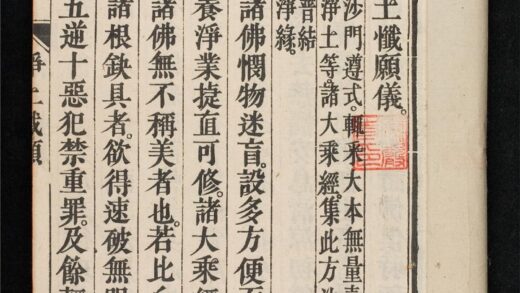 土懺願儀。
沙門遵式。輒采大本無量壽
淨土等。諸大乘經。集此方法
普結
淨緣。
諸佛憫物迷盲。設多方便
養淨業捷直可修。諸大乘經
諸佛無不稱美者也。若比
諸根缺具者。欲得速破無明
五逆十惡犯禁重罪。及餘輕
土懺願